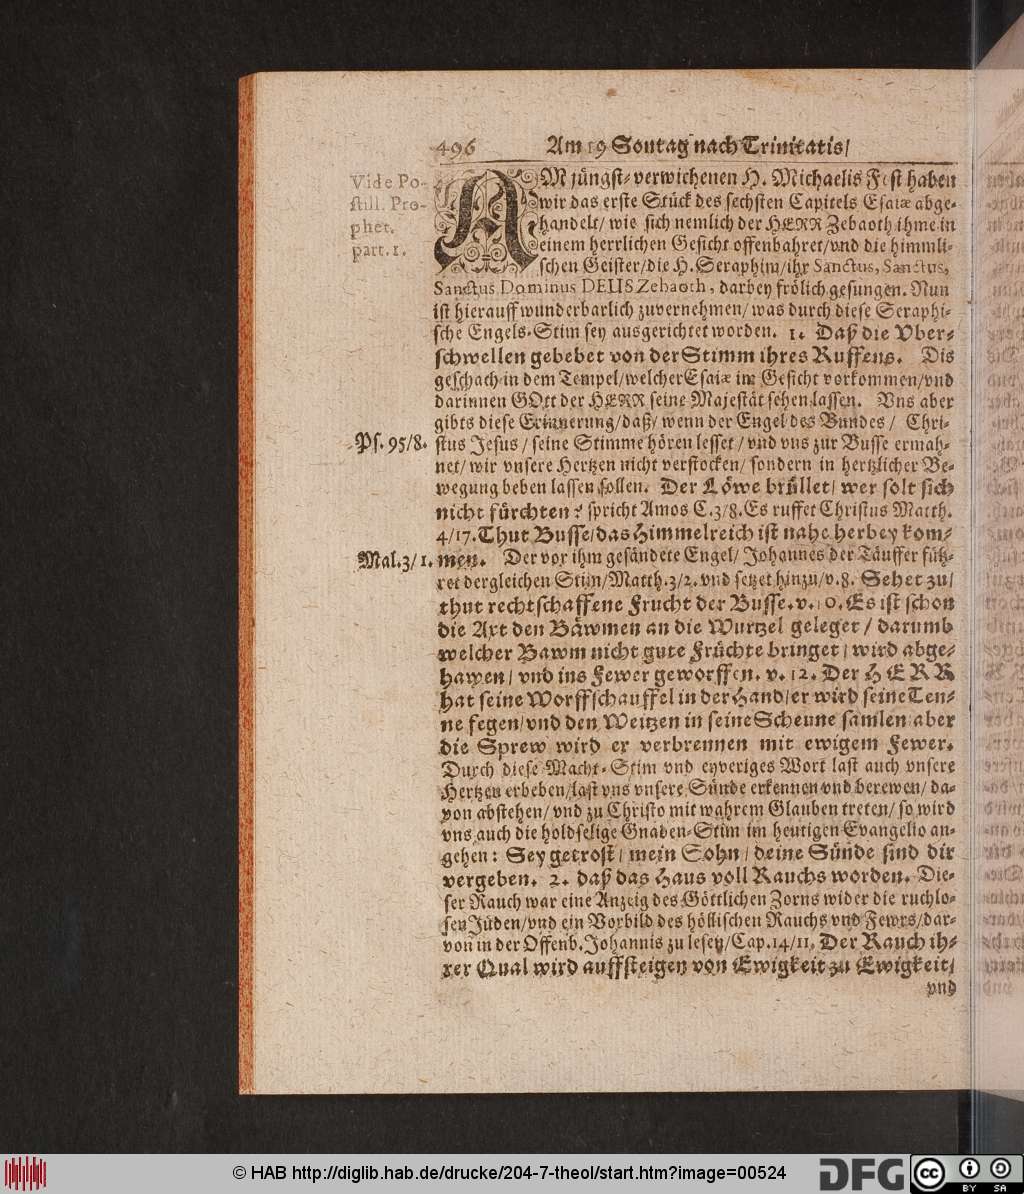 496 Am 19 Sontag nach Trinitatis/
Vide Po-
still. Pro-
phet.
part. 1.
AM jüngst-verwichenen H. Michaelis Fest haben
wir das erste Stück des sechsten Capitels Esaiæ abge-
handelt/ wie sich nemlich der HERR Zebaoth ihme in
einem herrlichen Gesicht offenbahret/ vnd die himmli-
schen Geister/ die H. Seraphim/ ihr Sanctus, Sanctus,
Sanctus Dominus DEUS Zebaoth, darbey frölich gesungen. Nun
ist hierauff wunderbarlich zuvernehmen/ was durch diese Seraphi-
sche Engels-Stim sey ausgerichtet worden. 1. Daß die Vber-
schwellen gebebet von der Stimm ihres Ruffens. Dis
geschach in dem Tempel/ welcher Esaiæ im Gesicht vorkommen/ vnd
darinnen GOtt der HERR seine Majestät sehen lassen. Vns aber
gibts diese Erinnerung/ daß/ wenn der Engel des Bundes/ Chri-
Ps. 95/8. stus Jesus/ seine Stimme hören lesset/ vnd vns zur Busse ermah-
net/ wir vnsere Hertzen nicht verstocken/ sondern in hertzlicher Be-
wegung beben lassen sollen. Der Löwe brüllet/ wer solt sich
nicht fürchten? spricht Amos C. 3/8. Es ruffet Christus Matth.
4/17. Thut Busse/ das Himmelreich ist nahe herbey kom-
Mal. 3/1. men. Der vor ihm gesändete Engel/ Johannes der Täuffer füh-
ret dergleichen Stim/ Matth. 3/2. vnd setzet hinzu/ v. 8. Sehet zu/
thut rechtschaffene Frucht der Busse. v. 10. Es ist schon
die Axt den Bäwmen an die Wurtzel geleget/ darumb
welcher Bawm nicht gute Früchte bringet/ wird abge-
hawen/ vnd ins Fewer geworffen. v. 12. Der HERR
hat seine Worffschauffel in der Hand/ er wird seine Ten-
ne fegen/ vnd den Weitzen in seine Scheune samlen aber
die Sprew wird er verbrennen mit ewigem Fewer.
Durch diese Macht-Stim vnd eyveriges Wort last auch vnsere
Hertzen erbeben/ last vns vnsere Sünde erkennen vnd berewen/ da-
von abstehen/ vnd zu Christo mit wahrem Glauben treten/ so wird
vns auch die holdselige Gnaden-Stim im heutigen Evangelio an-
gehen: Sey getrost/ mein Sohn/ deine Sünde sind dir
vergeben. 2. daß das Haus voll Rauchs worden. Die-
ser Rauch war eine Anzeig des Göttlichen Zorns wider die ruchlo-
sen Jüden/ vnd ein Vorbild des höllischen Rauchs vnd Fewrs/ dar-
von in der Offenb. Johannis zu lesen/ Cap. 14/11. Der Rauch ih-
rer Qual wird auffsteigen von Ewigkeit zu Ewigkeit/
vnd
© HAB http://diglib.hab.de/drucke/204-7-theol/start.htm?image=00524
DFG
cc BY SA